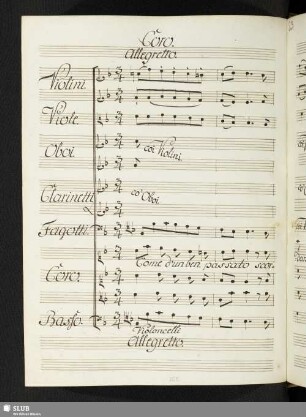 Coro.
Allegretto.
Violini.
Viole.
Oboi.
coi Violini.
Clarinetti
co' Oboi.
Fagotti.
Come d'un ben passato
Coro.
Basso.
Violoncelli
Allegretto.
SLUB